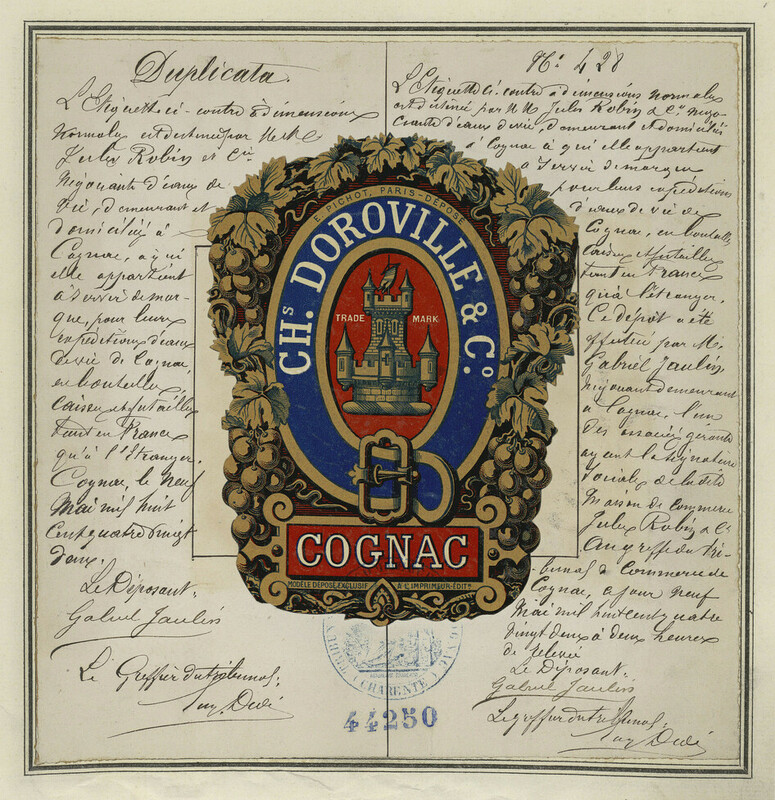 Duplicata.
L'Etiquette ci-contre à dimensions
normales est destinée par MM.
Jules Robin et Cie
négociants d'eaux de
vie, demeurant et
domiciliés à
Cognac, à qui
elle appartient
à servir de mar-
que, pour leurs
expéditions d'eaux
de vie de Cognac,
en bouteilles
caisses et futailles
tant en France
qu'à l'étranger.
Cognac, le neuf
Mai mil huit
cent quatre vingt
deux.
Le Déposant.
Gabriel Jaulin
Le Greffier du tribunal.
No. 428
L'Etiquette ci-contre à dimensions normales
est destinée par MM. Jules Robin & Cie négo-
ciants d'eaux de vie, demeurant et domiciliés
à Cognac à qui elle appartient
à servir de marque
pour leurs expéditions
d'eaux de vie de
Cognac, en bouteilles
caisses et futailles
tant en France
qu'à l'étranger.
Ce dépôt a été
effectué par M.
Gabriel Jaulin,
négociant demeurant
à Cognac, l'un
des associés gérants
ayant la signature
sociale de la dite
maison de commerce
Jules Robin & Cie
au greffe du tri-
bunal de commerce de
Cognac, ce jour neuf
Mai mil huit cent quatre
vingt deux à deux heures
de relevée
Le Déposant.
Gabriel Jaulin
Le greffier du tribunal.
E. PICHOT, PARIS-DÉPOSÉ
CHs. DOROVILLE & Co
TRADE MARK
COGNAC
MODÈLE DÉPOSÉ EXCLUSIF À L'IMPRIMEUR-ÉDITr.
CHARENTE
44250